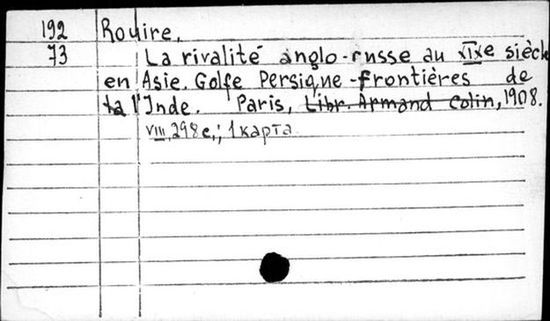 192 Rouire.
73 La rivalité anglo-russe au XIXe siècle
en Asie. Golfe Persique-frontières de
la l'Inde. Paris, Libr. Armand Colin, 1908.
VIII, 298 с.; 1 карта